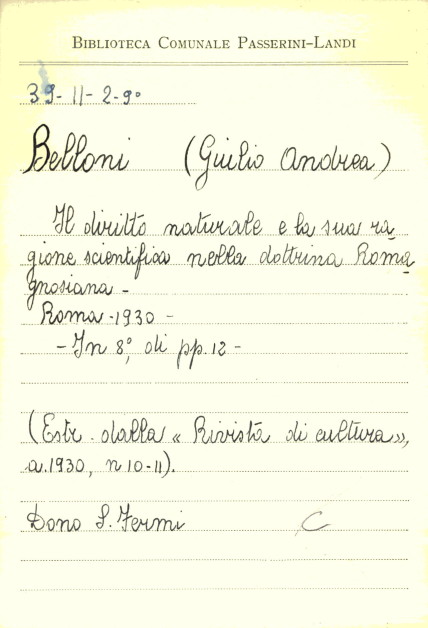 BIBLIOTECA COMUNALE PASSERINI-LANDI
39-11-2-9°
Belloni (Giulio Andrea)
Il diritto naturale e la sua ra
gione scientifica nella dottrina Roma
gnosiana -
Roma - 1930 -
- In 8°, di pp. 12 -
(Estr. dalla « Rivista di cultura »,
a. 1930, n 10-11).
Dono S. Fermi C